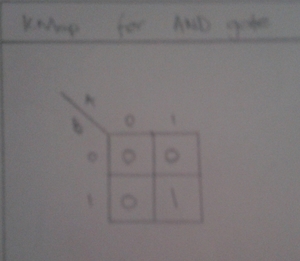 KMap for AND gate
A
B
0 1
0 0 0
1 0 1